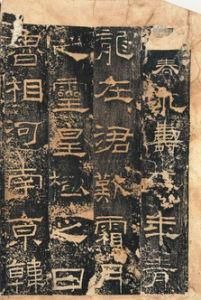 永壽二年青
龍在涒歎霜月
之靈皇極之日
魯相河南京韓